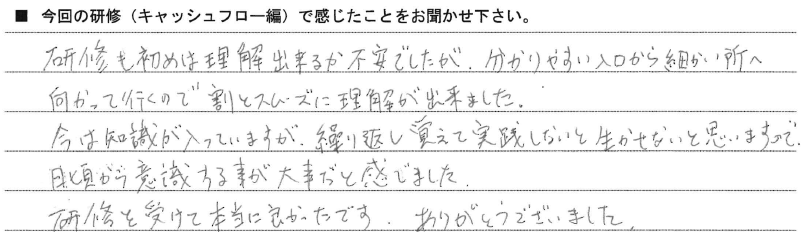 ■ 今回の研修（キャッシュフロー編）で感じたことをお聞かせ下さい。
研修も初めは理解出来るか不安でしたが、分かりやすい入口から細かい所へ
向かって行くので割とスムーズに理解が出来ました。
今は知識が入っていますが、繰り返し覚えて実践しないと生かせないと思いますので、
日頃から意識する事が大事だと感じました。
研修を受けて本当に良かったです。ありがとうございました。